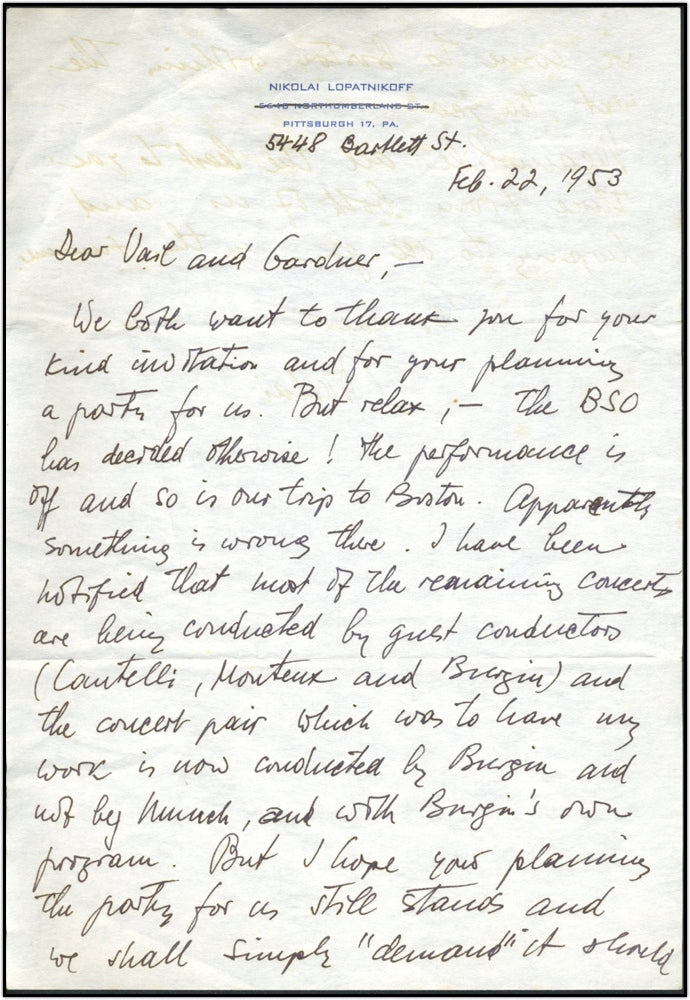 NIKOLAI LOPATNIKOFF
5648 NORTHUMBERLAND ST.
PITTSBURGH 17, PA.
5448 Bartlett St.
Feb. 22, 1953
Dear Vail and Gardner, —
We both want to thank you for your
kind invitation and for your planning
a party for us. But relax, — the BSO
has decided otherwise! The performance is
off and so is our trip to Boston. Apparently
something is wrong there. I have been
notified that most of the remaining concerts
are being conducted by guest conductors
(Cantelli, Monteux and Burgin) and
the concert pair which was to have my
work is now conducted by Burgin and
not by Munch, and with Burgin's own
program. But I hope your planning
the party for us still stands and
we shall simply "demand" it should